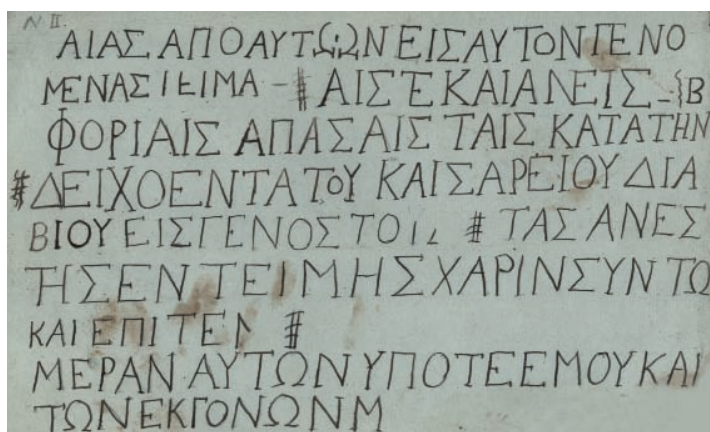 N II.
ΑΙΑΣ ΑΠΟ ΑΥΤΩΝ ΕΙΣ ΑΥΤΟΝ ΓΕΝΟ
ΜΕΝΑΣ ΤΕΙΜΑ – # ΑΙΣΤΕ ΚΑΙ ΑΝΕΙΣ – Β
ΦΟΡΙΑΙΣ ΑΠΑΣΑΙΣ ΤΑΙΣ ΚΑΤΑ ΤΗΝ
# ΔΕΙΧΟΕΝΤΑ ΤΟΥ ΚΑΙΣΑΡΕΙΟΥ ΔΙΑ
ΒΙΟΥ ΕΙΣ ΓΕΝΟΣ ΤΟ # ΤΑΣ ΑΝΕΣ
ΤΗΣΕΝ ΤΕΙΜΗΣ ΧΑΡΙΝ ΣΥΝ ΤΩ
ΚΑΙ ΕΠΙ ΤΕΝ #
ΜΕΡΑΝ ΑΥΤΩΝ ΥΠΟ ΤΕ ΕΜΟΥ ΚΑΙ
ΤΩΝ ΕΚΓΟΝΩΝ Μ